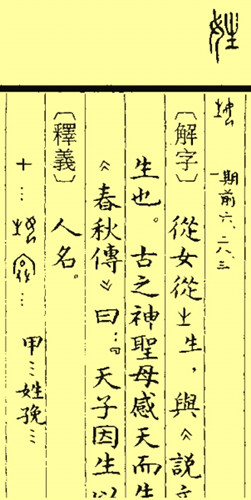 姓
一期前六、二八、三
〔解字〕從女從生，與《説文
生也。古之神聖母感天而生
《春秋傳》曰：『天子因生以
〔釋義〕人名。
甲…姓娩…